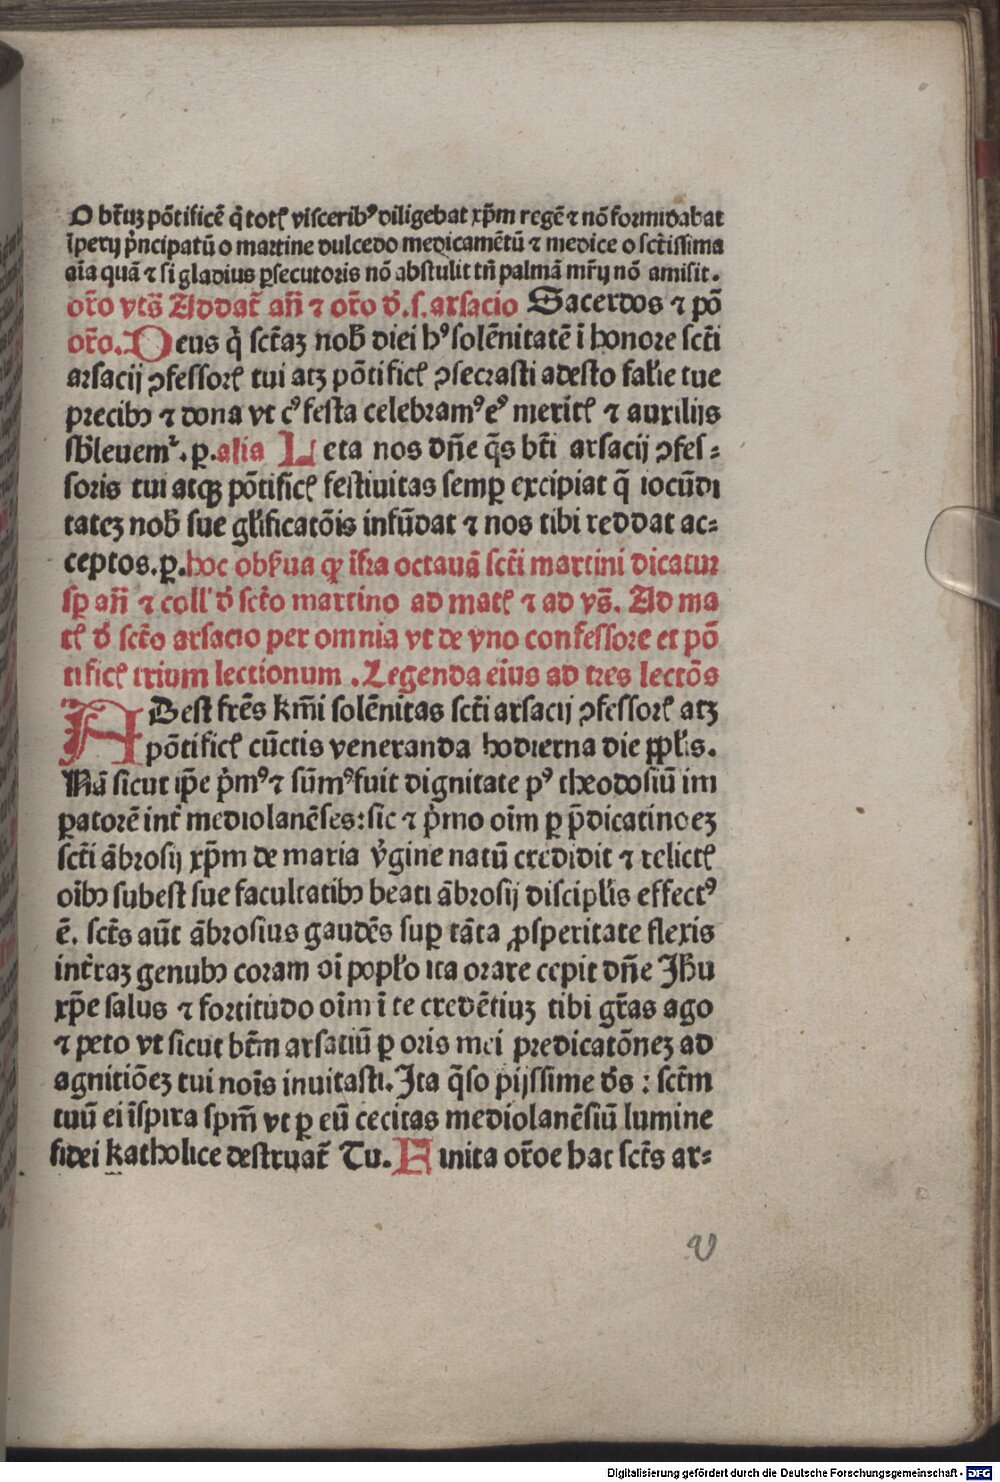 O btūꝫ pōtificē q̄ totꝭ visceribꝰ diligebat xp̄m regē ⁊ nō formidabat
īperij p̄ncipatū o martine dulcedo medicamētū ⁊ medice o sct̄issima
aīa quā ⁊ si gladius ꝑsecutoris nō abstulit tn̄ palmā mr̄ij nō amisit.
or̄o vts̄ Addat̄ an̄ ⁊ or̄o d̄.s.arsacio Sacerdos ⁊ pō
or̄o. Deus q̇ sct̄aꝫ nob̄ diei hꝰ solēnitatē ī honore sct̄i
arsacij ꝯfessorꝭ tui atꝫ pōtificꝭ ꝯsecrasti adesto fal̄ie tue
precibꝫ ⁊ dona vt cꝰ festa celebramꝰ eꝰ merit̄ꝭ ⁊ auxilijs
sb̄leuemᷣ. ꝑ. alia Leta nos dn̄e q̄s bt̄i arsacij ꝯfes⸗
soris tui atqꝫ pōtificꝭ festiuitas semꝑ excipiat q̄ iocūdi
tateꝫ nob̄ sue gl̄ificatōis infūdat ⁊ nos tibi reddat ac⸗
ceptos. ꝑ. hoc obſ̄ua qꝛ īfra octauā sct̄i martini dicatur
sꝑ an̄ ⁊ coll' d̄ sct̄o martino ad matꝭ ⁊ ad vs̄. Ad ma
tꝭ d̄ sct̄o arsacio per omnia vt de vno confessore et pō
tificꝭ trium lectionum. Legenda eiūs ad tres lectōs
ADest frēs km̄i solēnitas sct̄i arsacij ꝯfessorꝭ atꝫ
pōtificꝭ cūctis veneranda hodierna die ꝓpl̄is.
Nā sicut ip̄e ṗmꝰ ⁊ sūmꝰ fuit dignitate pꝰ theodosiū im
ꝑatorē int̄ mediolanēses: sic ⁊ ṗmo oīm ꝑ p̄dicatinoeꝫ
sct̄i ābrosij xp̄m de maria v̇gine natū credidit ⁊ relictꝭ
oībꝫ subest sue facultatibꝫ beati ābrosij discipl̄is effectꝰ
ē. sct̄s aūt ābrosius gaudēs suꝑ tāta ꝓsperitate flexis
int̄raꝫ genubꝫ coram oī popl̄o ita orare cepit dn̄e Jh̄u
xp̄e salus ⁊ fortitudo oīm ī te credētiuꝫ tibi gr̄as ago
⁊ peto vt sicut bt̄m arsatiū ꝑ oris mei predicatōneꝫ ad
agnitiōeꝫ tui noīs inuitasti. Ita q̄so pijssime ds̄: sct̄m
tuū ei īspira spm̄ vt ꝑ eū cecitas mediolanēsiū lumine
fidei katholice destruat̄ Tu. Finita or̄oe hac sct̄s ar⸗
v
Digitalisierung gefördert durch die Deutsche Forschungsgemeinschaft - DFG